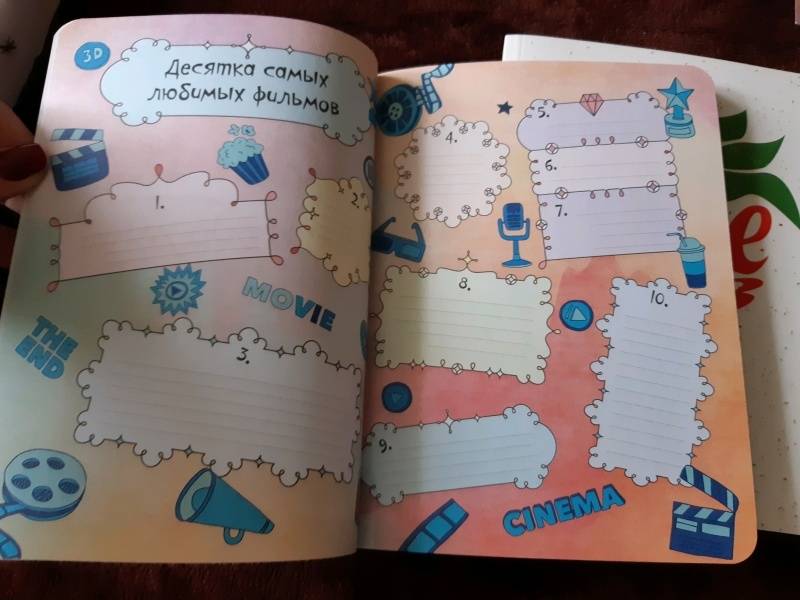 3D
Десятка самых
любимых фильмов
1.
2.
MOVIE
THE
END
3.
4.
5.
6.
7.
8.
9.
10.
CINEMA